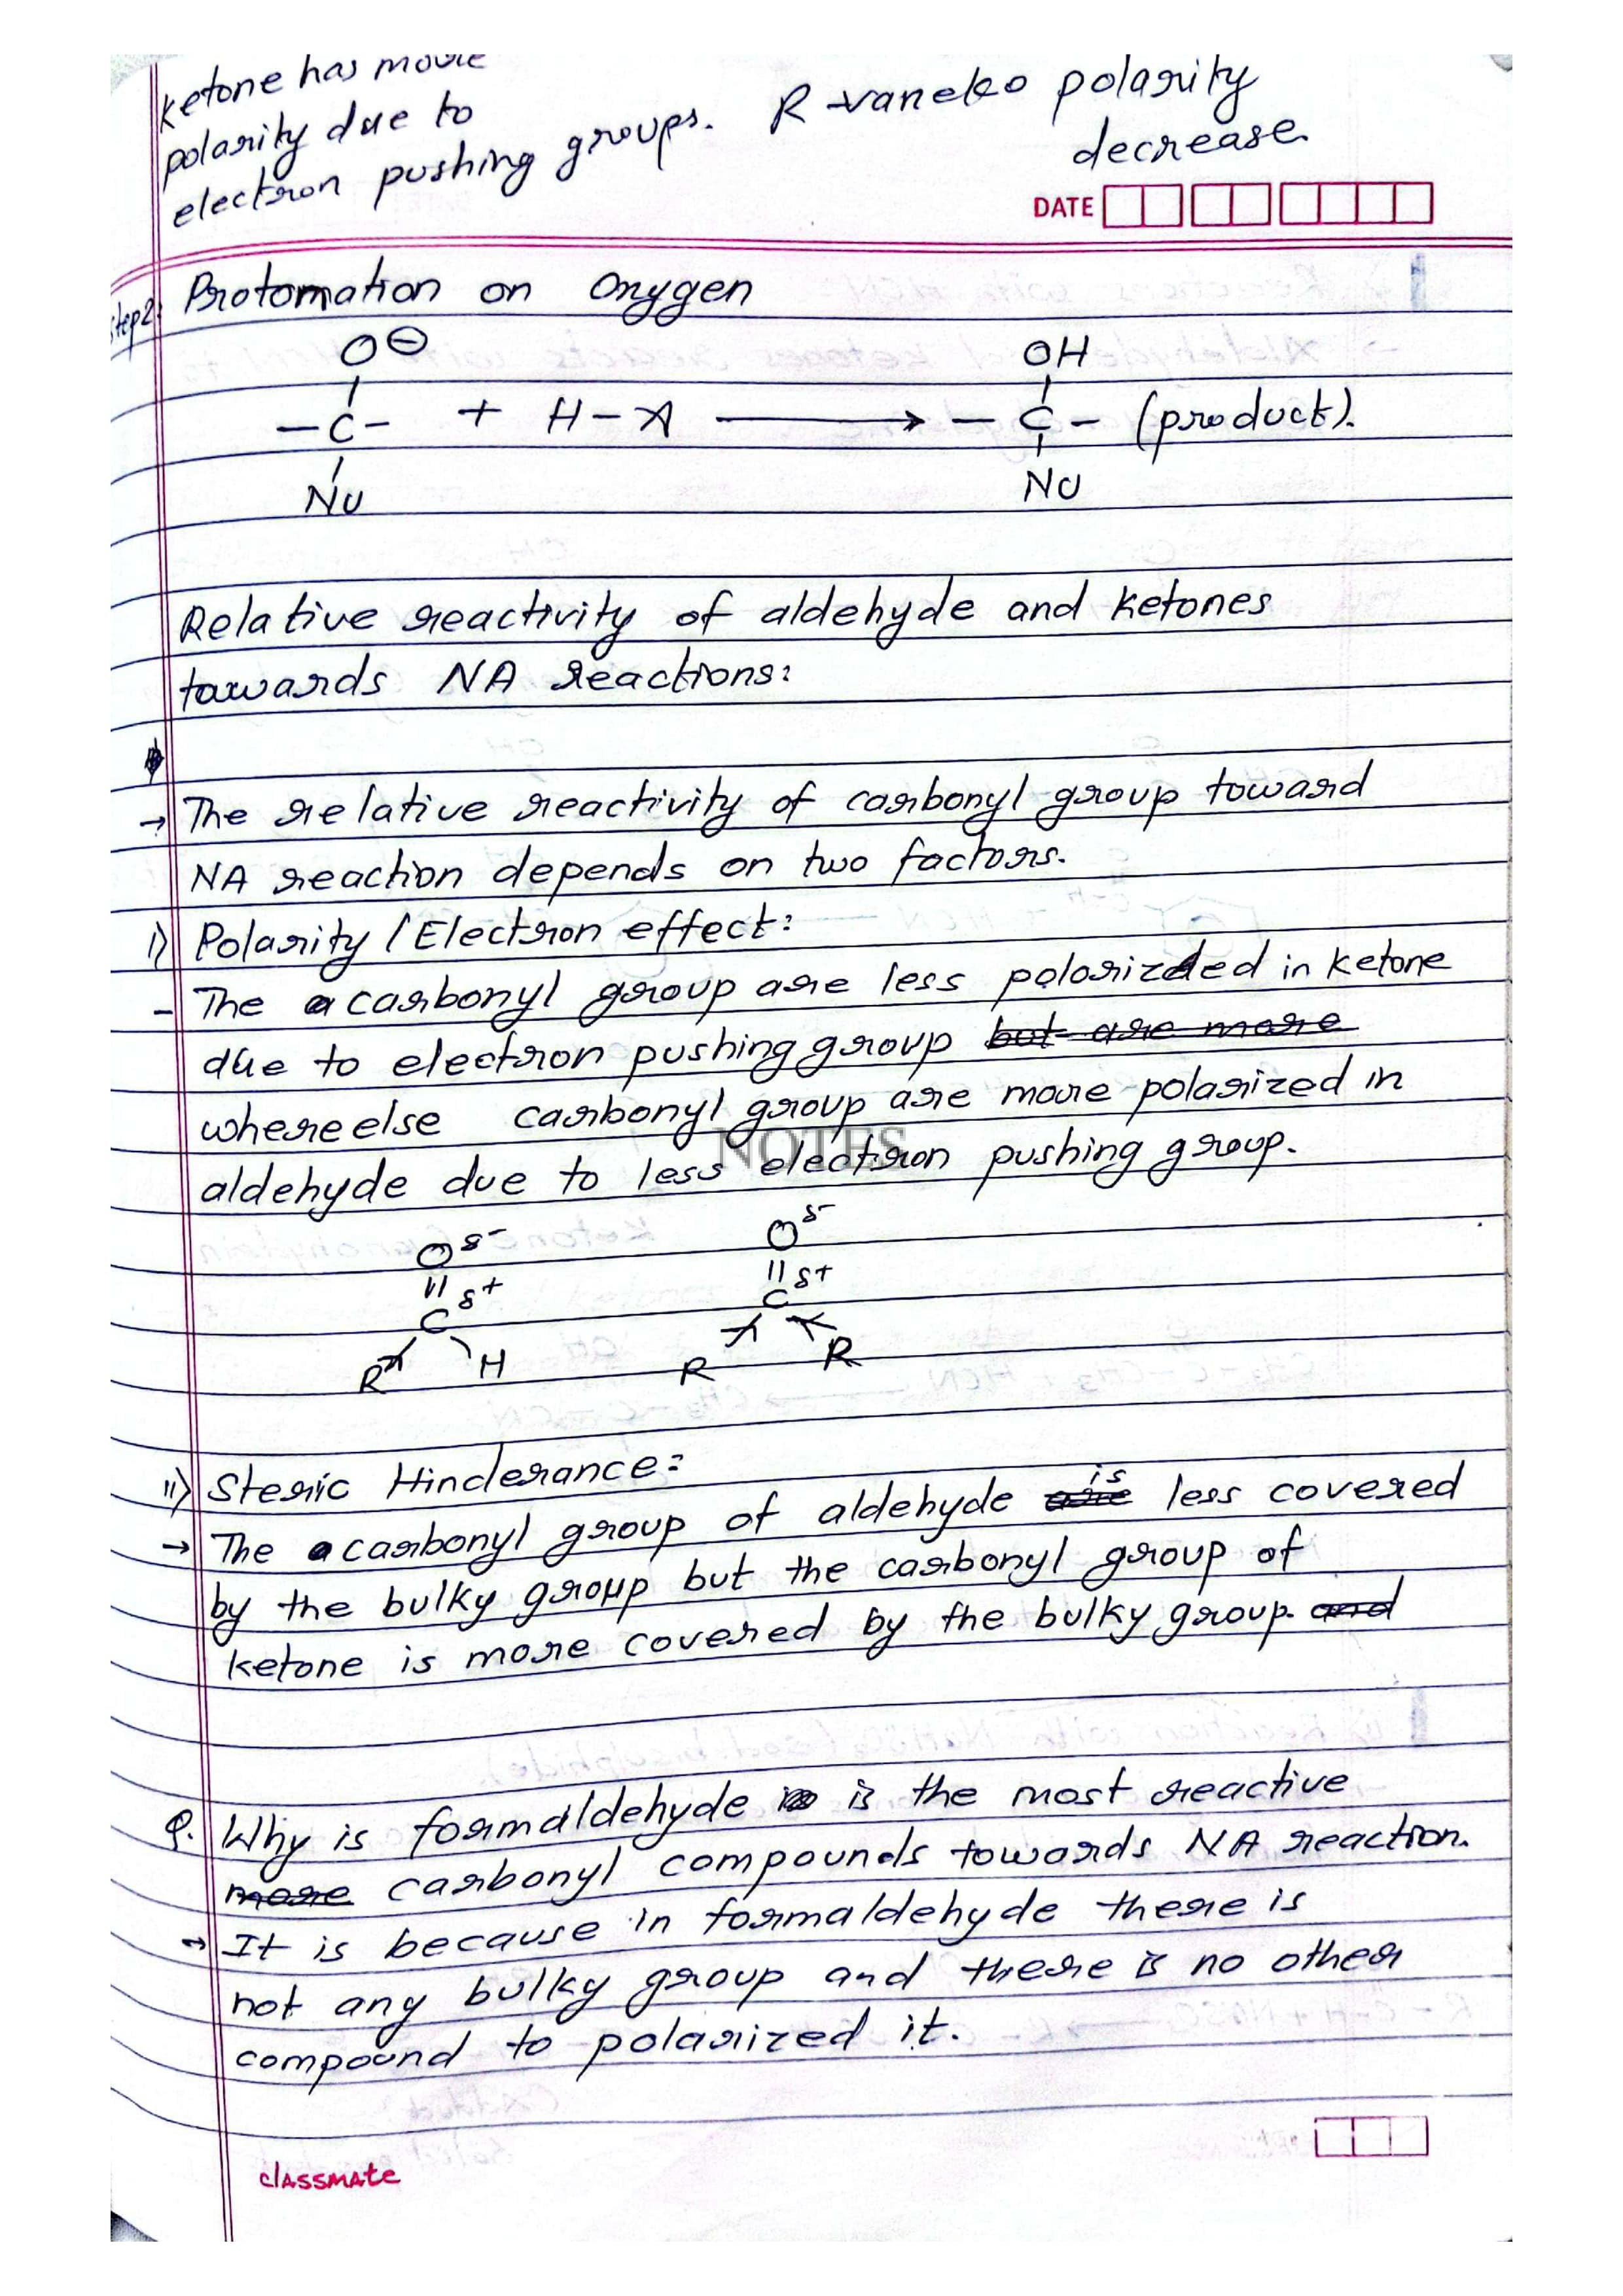 ketone has more
polarity due to
electron pushing groups.
R vaneko polarity
decrease.
DATE
Step2: Protomation on Oxygen
O⊖ OH
-C- + H-A ⟶ -C- (product).
Nu Nu
Relative reactivity of aldehyde and ketones
towards NA reactions:
→ The relative reactivity of carbonyl group toward
NA reaction depends on two factors.
i) Polarity / Electron effect:
- The carbonyl group are less polarized in ketone
due to electron pushing group but are more
whereelse carbonyl group are more polarized in
NOTES
aldehyde due to less electron pushing group.
O δ- O δ-
|| δ+ || δ+
C C
R H R R
ii) Steric Hinderance:
→ The carbonyl group of aldehyde are is less covered
by the bulky group but the carbonyl group of
ketone is more covered by the bulky group. and
Q. Why is formaldehyde is the most reactive
more carbonyl compounds towards NA reaction.
→ It is because in formaldehyde there is
not any bulky group and there is no other
compound to polarized it.
classmate